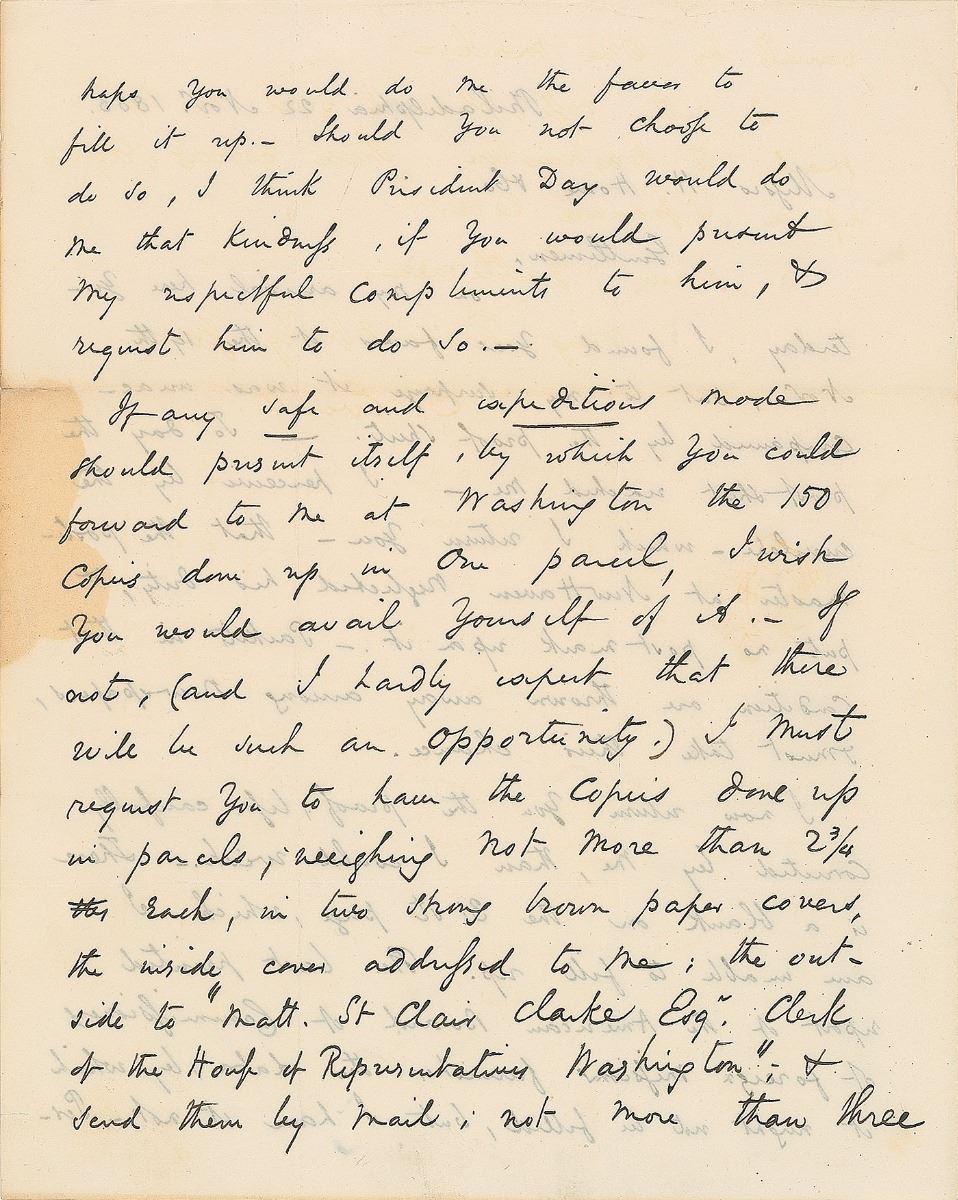 haps you would do me the favor to
fill it up. – Should you not choose to
do so, I think President Day would do
me that kindness, if you would present
my respectful compliments to him, &
request him to do so. —
If any safe and expeditious mode
should present itself, by which you could
forward to me at Washington the 150
Copies done up in One parcel, I wish
you would avail yourself of it. – If
not, (and I hardly expect that there
will be such an opportunity.) I must
request you to have the Copies done up
in parcels, weighing not more than 2¾
lbs each, in two strong brown paper covers,
the inside cover addressed to me; the out-
side to "Matt. St Clair Clarke Esqr. Clerk
of the House of Representatives Washington"; &
send them by mail; not more than three